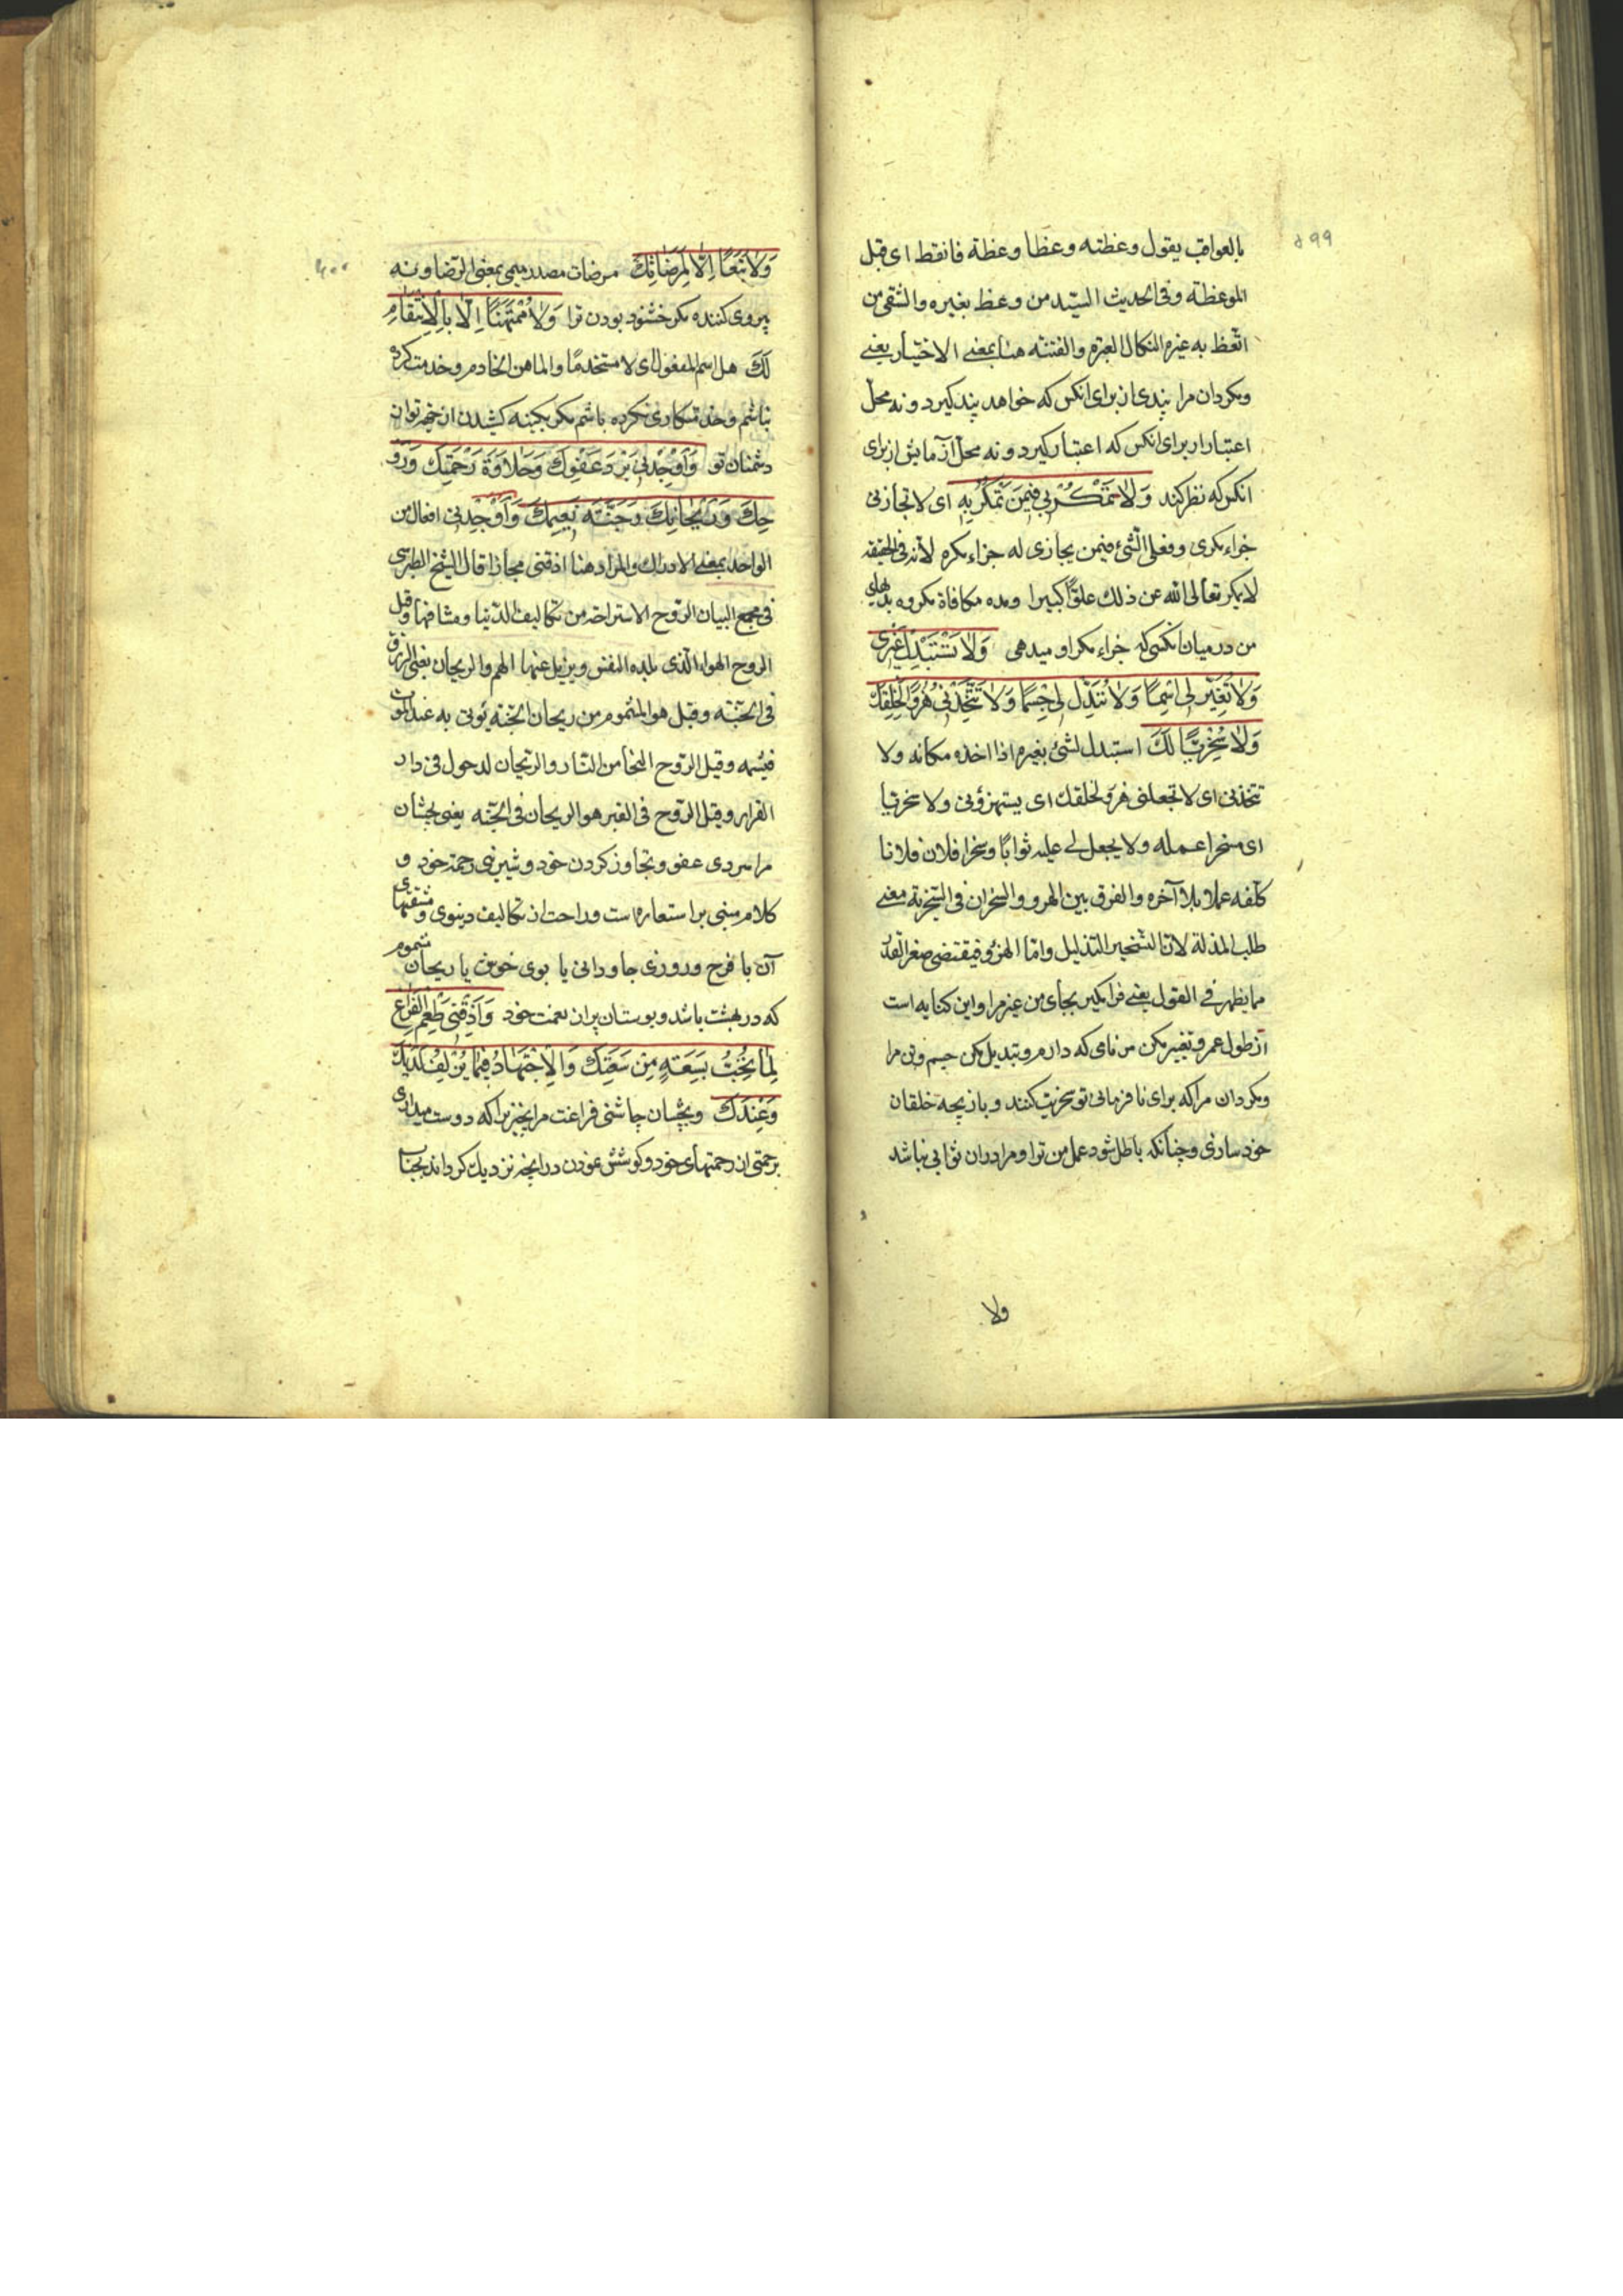 ۵۹۹
بالعواقب يقول وعظته وعظا وعظة فاتعظ ای قبل
الموعظة وفی الحدیث السّید من وعظ بغیره والشقی من
اتّعظ به غیره النکال العبرة والفتنة هنا بمعنی الاختبار یعنی
ومکردان مرا پندی از برای انکس که خواهد پند کیرد ونه محل
اعتبار از برای انکس که اعتبار کیرد ونه محل آزمایش از برای
انکس که نظر کند وَلَا تَمْكُرْ بِي فِيمَنْ تَمْكُرُ بِهِ ای لا تجازنی
جزاء مکری وفعلی الشئ فیمن یجازی له جزاء مکره لانه فی الحقیقة
لا یمکر تعالی الله عن ذلك علوًّا کبیرا ومده مکافاة مکروه بدیهای
من در میان انکسی که جزاء مکر او میدهی وَلَا تَسْتَبْدِلْ بِي غَيْرِي
وَلَا تُغَيِّرْ لِي اسْمًا وَلَا تُبَدِّلْ لِي جِسْمًا وَلَا تَتَّخِذْنِي هُزُوًا لِخَلْقِكَ
وَلَا سُخْرِيًّا لَكَ استبدل الشئ بغیره اذا اخذه مکانه ولا
تتخذنی ای لا تجعلنی هزو لخلقك ای یستهزؤنی ولا سخریّا
ای مسخرا عمله ولا یجعل لی علیه ثوابًا وسخرا فلان فلانا
کلّفه عملا بلا آخره والفرق بین الهزو والسخران فی السّخریة معنی
طلب المذلة لانّ التسخیر التذلیل وامّا الهزؤ فیقتضی صغر القدر
مما یظهر فی القول یعنی فرا مکیر بجای من غیر مرا واین کنایه است
از طول عمر وتغییر مکن من نامی که دارم وتبدیل مکن جسم وتن مرا
ومکردان مرا که برای نافرمانی تو سخریت کنند وبازیچه خلقان
خود سازی وچنانکه باطل شود عمل من ترا ومرا دران ثوابی نباشد
ولا
۶۰۰
وَلَا تَبَعًا إِلَّا لِمَرْضَاتِكَ مرضات مصدر میمی بمعنی الرّضا ونه
پیروی کننده مکر خشنود بودن ترا وَلَا مُمْتَهَنًا إِلَّا بِالْاِنْتِقَامِ
لَكَ هل اسم المفعول ای لا مستخدمًا والماهن الخادم وخدمت کرده
نباشم وخدمتکاری نکرده باشم مکر بکینه کشیدن از جهر توان
دشمنان تو وَأَوْجِدْنِي بَرْدَ عَفْوِكَ وَحَلَاوَةَ رَحْمَتِكَ وَرَوْ
حِكَ وَرَيْحَانِكَ وَجَنَّةِ نَعِيمِكَ وَأَوْجِدْنِی افعال من
الواجد بمعنی الادراك والمراد هنا اذقنی مجازا قال الشیخ الطبرسی
فی مجمع البیان الرّوح الاستراحة من تکالیف الدّنیا ومشاقها وقیل
الروح الهواء الّذی یلذه النفس ویزیل عنها الهم والریحان یعنی الرزق
فی الجنّة وقیل هو المشموم من ریحان الجنّة یؤتی به عند الموت
فیشمه وقیل الرّوح النجا من النّار والرّیحان لدخول فی دار
القرار وقیل الرّوح فی القبر هو الریحان فی الجنّة یعنی بچشان
مرا سردی عفو وتجاوز کردن خود وشیرینی رحمة خود و
کلام مبنی بر استعاره است وراحت از تکالیف دنیوی ومشقتهای
آن با فرح وروزی جاودانی یا بوی خوش یا ریحان مشموم
که در بهشت باشد وبوستان بران نعمت خود وَأَذِقْنِي طَعْمَ الْفَرَاغِ
لِمَا تُحِبُّ بِسَعَةٍ مِنْ سَعَتِكَ وَالْاِجْتِهَادَ فِيمَا يُزْلِفُ لَدَيْكَ
وَعِنْدَكَ وبچشان چاشنی فراغت مرا بچیزیرا که دوست میداری
برحمتی از رحمتهای خود وکوشش نمودن در انچه نزدیك کرداند بجناب